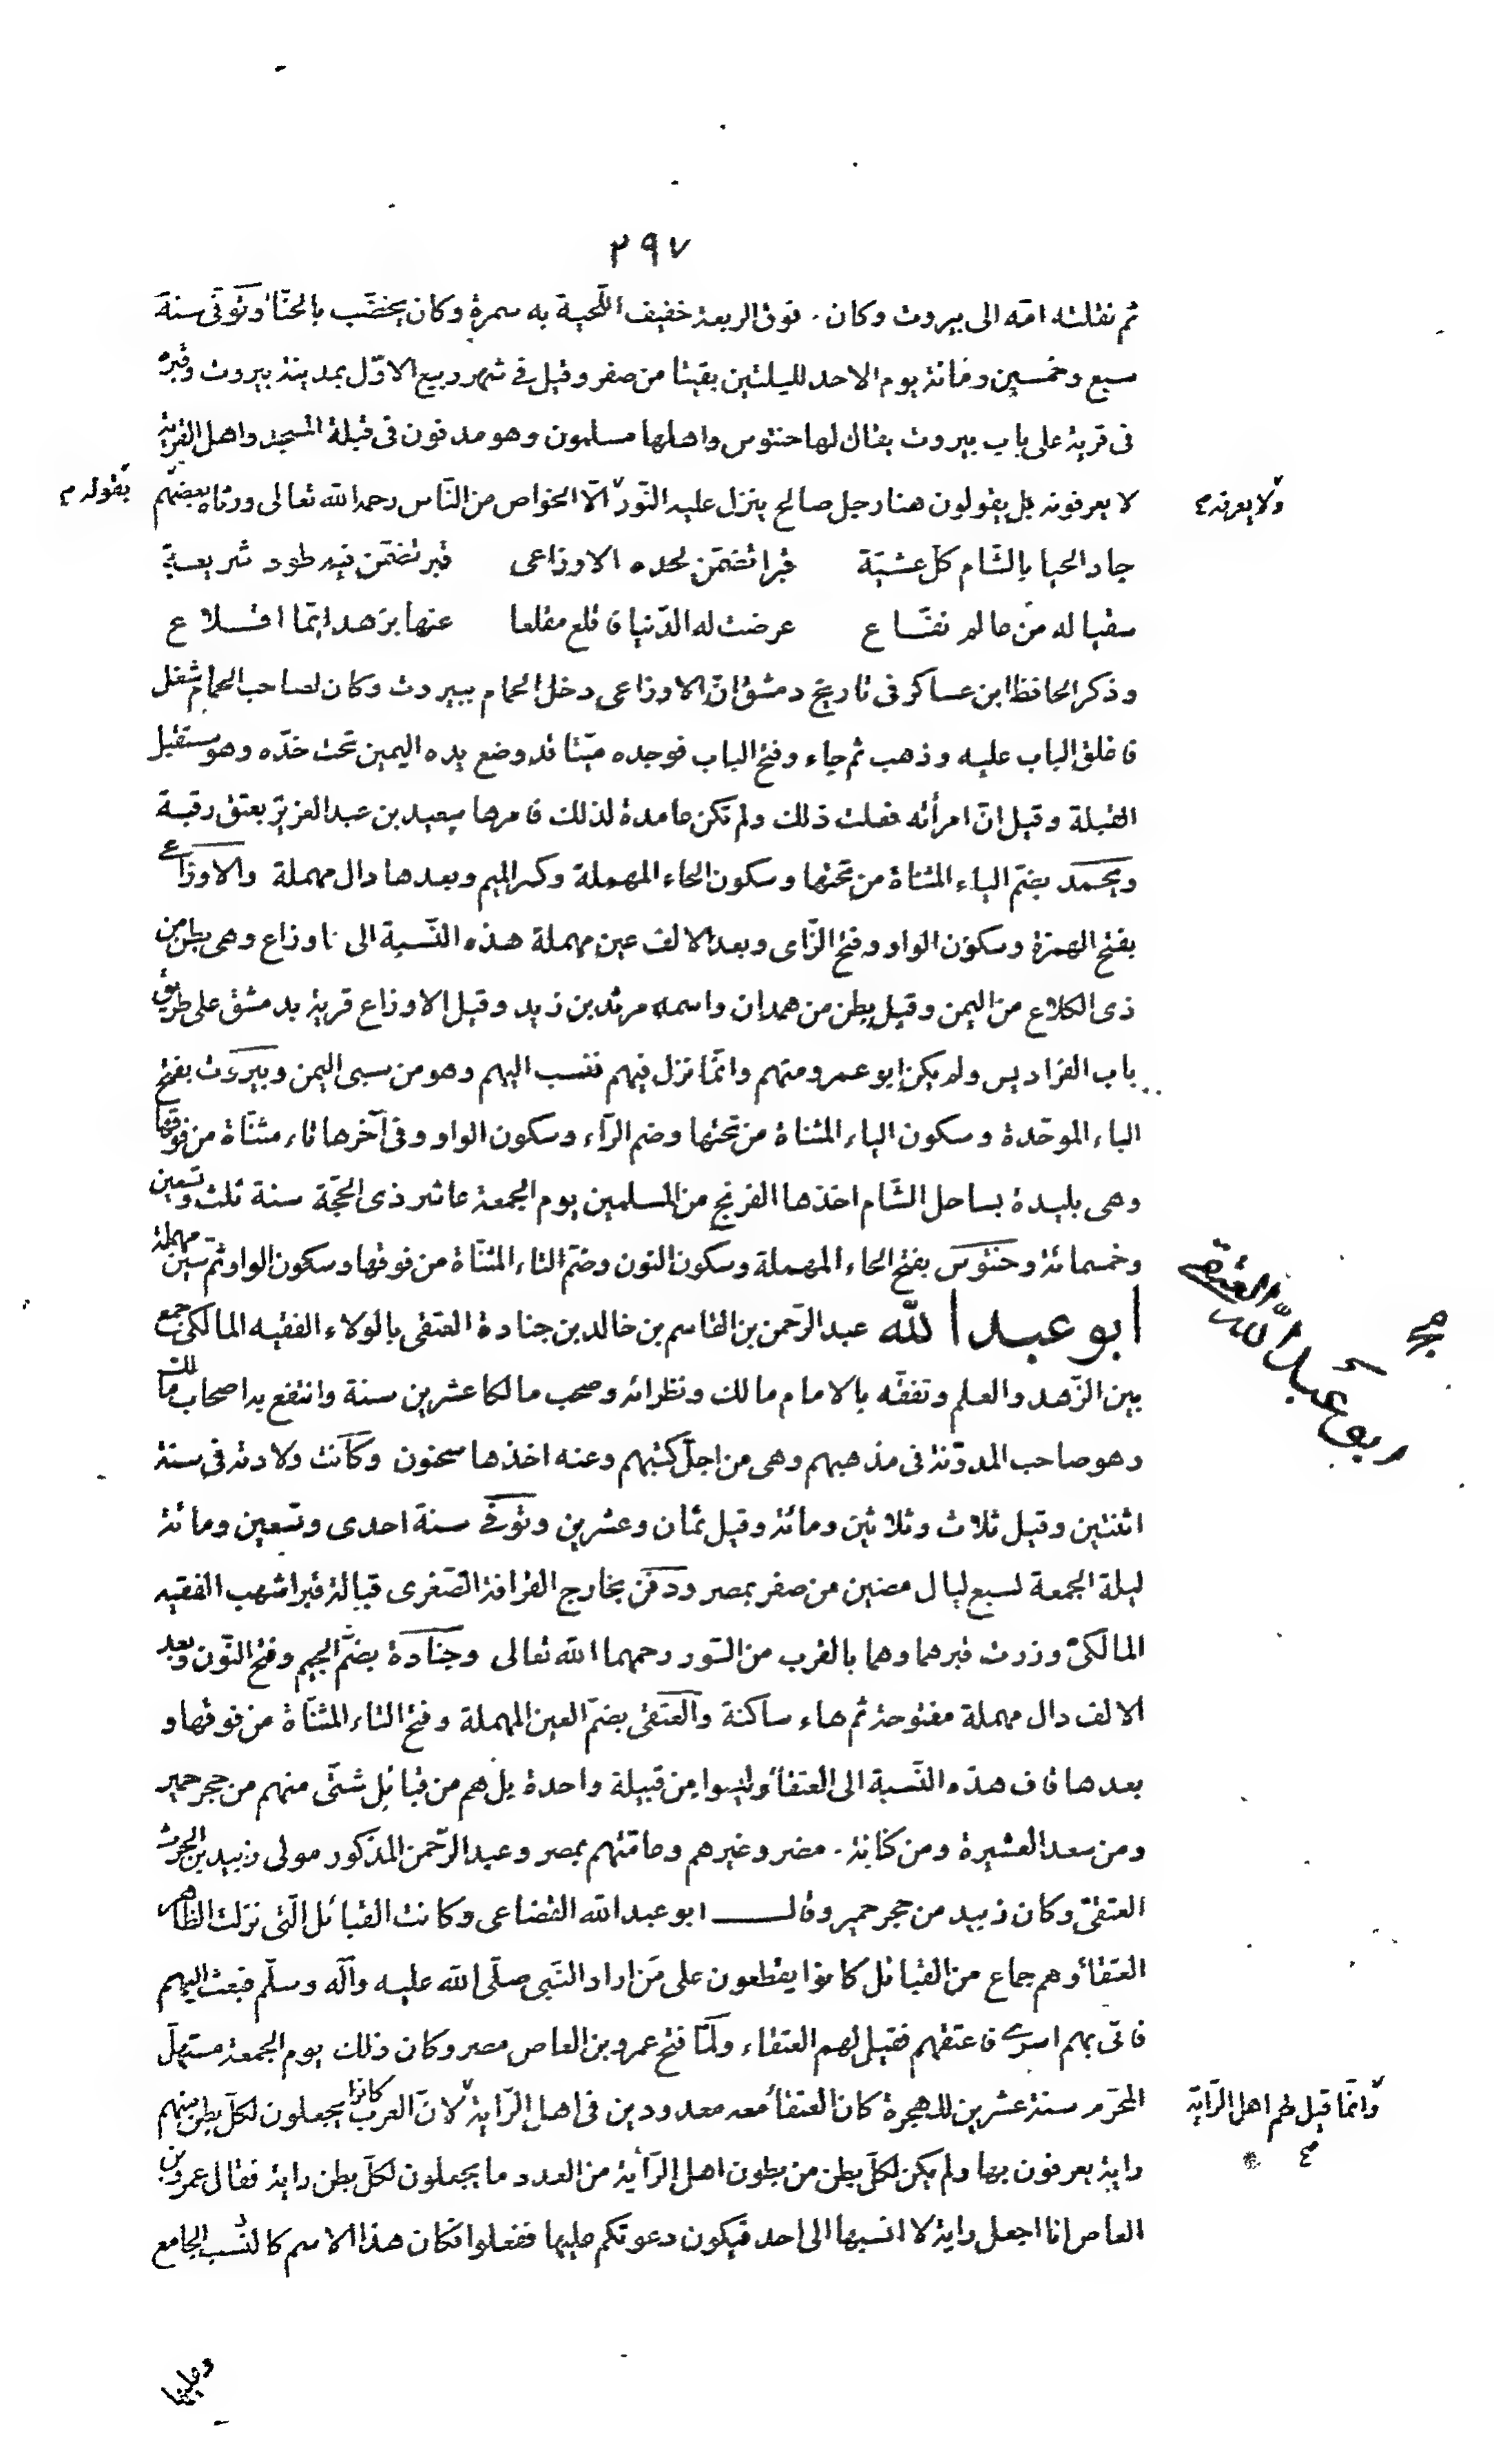 ٢٩٧
ثم نقلته امّه الى بيروت وكان فوق الربعة خفيف اللّحية به سمرة وكان يخضّب بالحنّاء وتوفّى سنة
سبع وخمسين ومائة يوم الاحد لليلتين بقيتا من صفر وقيل فى شهر ربيع الاوّل بمدينة بيروت وقبره
فى قرية على باب بيروت يقال لها حنتوس واهلها مسلمون وهو مدفون فى قبلة المسجد واهل القرية
لا يعرفونه بل يقولون هنا رجل صالح ينزل عليه النّور الّا الخواص من النّاس رحمه الله تعالى ورثاه بعضهم
ولا يعرفه
بقوله
جاد الحيا بالشّام كلّ عشيّة قبرا تضمّن لحده الاوزاعى قبر تضمّن فيه طود شريعة
سقيا له من عالم نفّاع عرضت له الدّنيا فاقلع مقلعا عنها بزهد ايّما اقلاع
وذكر الحافظ ابن عساكر فى تاريخ دمشق انّ الاوزاعى دخل الحمام ببيروت وكان لصاحب الحمام شغل
فاغلق الباب عليه وذهب ثم جاء وفتح الباب فوجده ميّتا قد وضع يده اليمين تحت خدّه وهو مستقبل
القبلة وقيل انّ امرأته فعلت ذلك ولم تكن عامدة لذلك فامرها سعيد بن عبد العزيز بعتق رقبة
ويحمد بضمّ الياء المثناة من تحتها وسكون الحاء المهملة وكسر الميم وبعدها دال مهملة والاوزاعى
بفتح الهمزة وسكون الواو وفتح الزّاى وبعد الالف عين مهملة هذه النّسبة الى اوزاع وهى بطن من
ذى الكلاع من اليمن وقيل بطن من همدان واسمه مرثد بن زيد وقيل الاوزاع قرية بدمشق على طريق
باب الفراديس ولم يكن ابو عمرو منهم وانّما نزل فيهم فنسب اليهم وهو من سبى اليمن وبيروت بفتح
الباء الموحّدة وسكون الياء المثناة من تحتها وضم الرّاء وسكون الواو وفى آخرها تاء مثنّاة من فوقها
وهى بليدة بساحل الشّام اخذها الفرنج من المسلمين يوم الجمعة عاشر ذى الحجّة سنة ثلث وتسعين
وخمسمائة وحنتوس بفتح الحاء المهملة وسكون النون وضمّ التاء المثنّاة من فوقها وسكون الواو ثمّ سين مهملة
ابو عبد الله العتقى
ابو عبد الله عبد الرّحمن بن القاسم بن خالد بن جنادة العتقى بالولاء الفقيه المالكى جمع
بين الزّهد والعلم وتفقّه بالامام مالك ونظرائه وصحب مالكا عشرين سنة وانتفع به اصحاب مالك
وهو صاحب المدوّنة فى مذهبهم وهى من اجلّ كتبهم وعنه اخذها سحنون وكانت ولادته فى سنة
اثنتين وقيل ثلاث وثلاثين ومائة وقيل ثمان وعشرين وتوفى سنة احدى وتسعين ومائة
ليلة الجمعة لسبع ليال مضين من صفر بمصر ودفن بخارج القرافة الصّغرى قبالة قبر اشهب الفقيه
المالكىّ وزرت قبرهما وهما بالقرب من السّور رحمهما الله تعالى وجنادة بضمّ الجيم وفتح النّون وبعد
الالف دال مهملة مفتوحة ثم هاء ساكنة والعتقى بضمّ العين المهملة وفتح التاء المثنّاة من فوقها و
بعدها قاف هذه النّسبة الى العتقاء وليسوا من قبيلة واحدة بل هم من قبائل شتّى منهم من حجر حمير
ومن سعد العشيرة ومن كنانة مضر وغيرهم وعامّتهم بمصر وعبد الرّحمن المذكور مولى زبيد بن الحرث
العتقىّ وكان زبيد من حجر حمير وقال ابو عبد الله القضاعى وكانت القبائل الّتى نزلت الظاهر
العتقاء وهم جماع من القبائل كانوا يقطعون على من اراد النّبى صلّى الله عليه وآله وسلّم فبعث اليهم
فاتى بهم اسرى فاعتقهم فقيل لهم العتقاء ولمّا فتح عمرو بن العاص مصر وكان ذلك يوم الجمعة مستهلّ
المحرّم سنة عشرين للهجرة كان العتقاء معه معدودين فى اهل الرّاية لانّ العرب كانوا يجعلون لكلّ بطن منهم
وانّما قيل لهم اهل الرّاية
راية يعرفون بها ولم يكن لكلّ بطن من بطون اهل الرّأية من العدد ما يجعلون لكلّ بطن راية فقال عمرو بن
العاص انا اجعل راية لا انسبها الى احد فيكون دعوتكم عليها ففعلوا فكان هذا الاسم كالنّسب الجامع